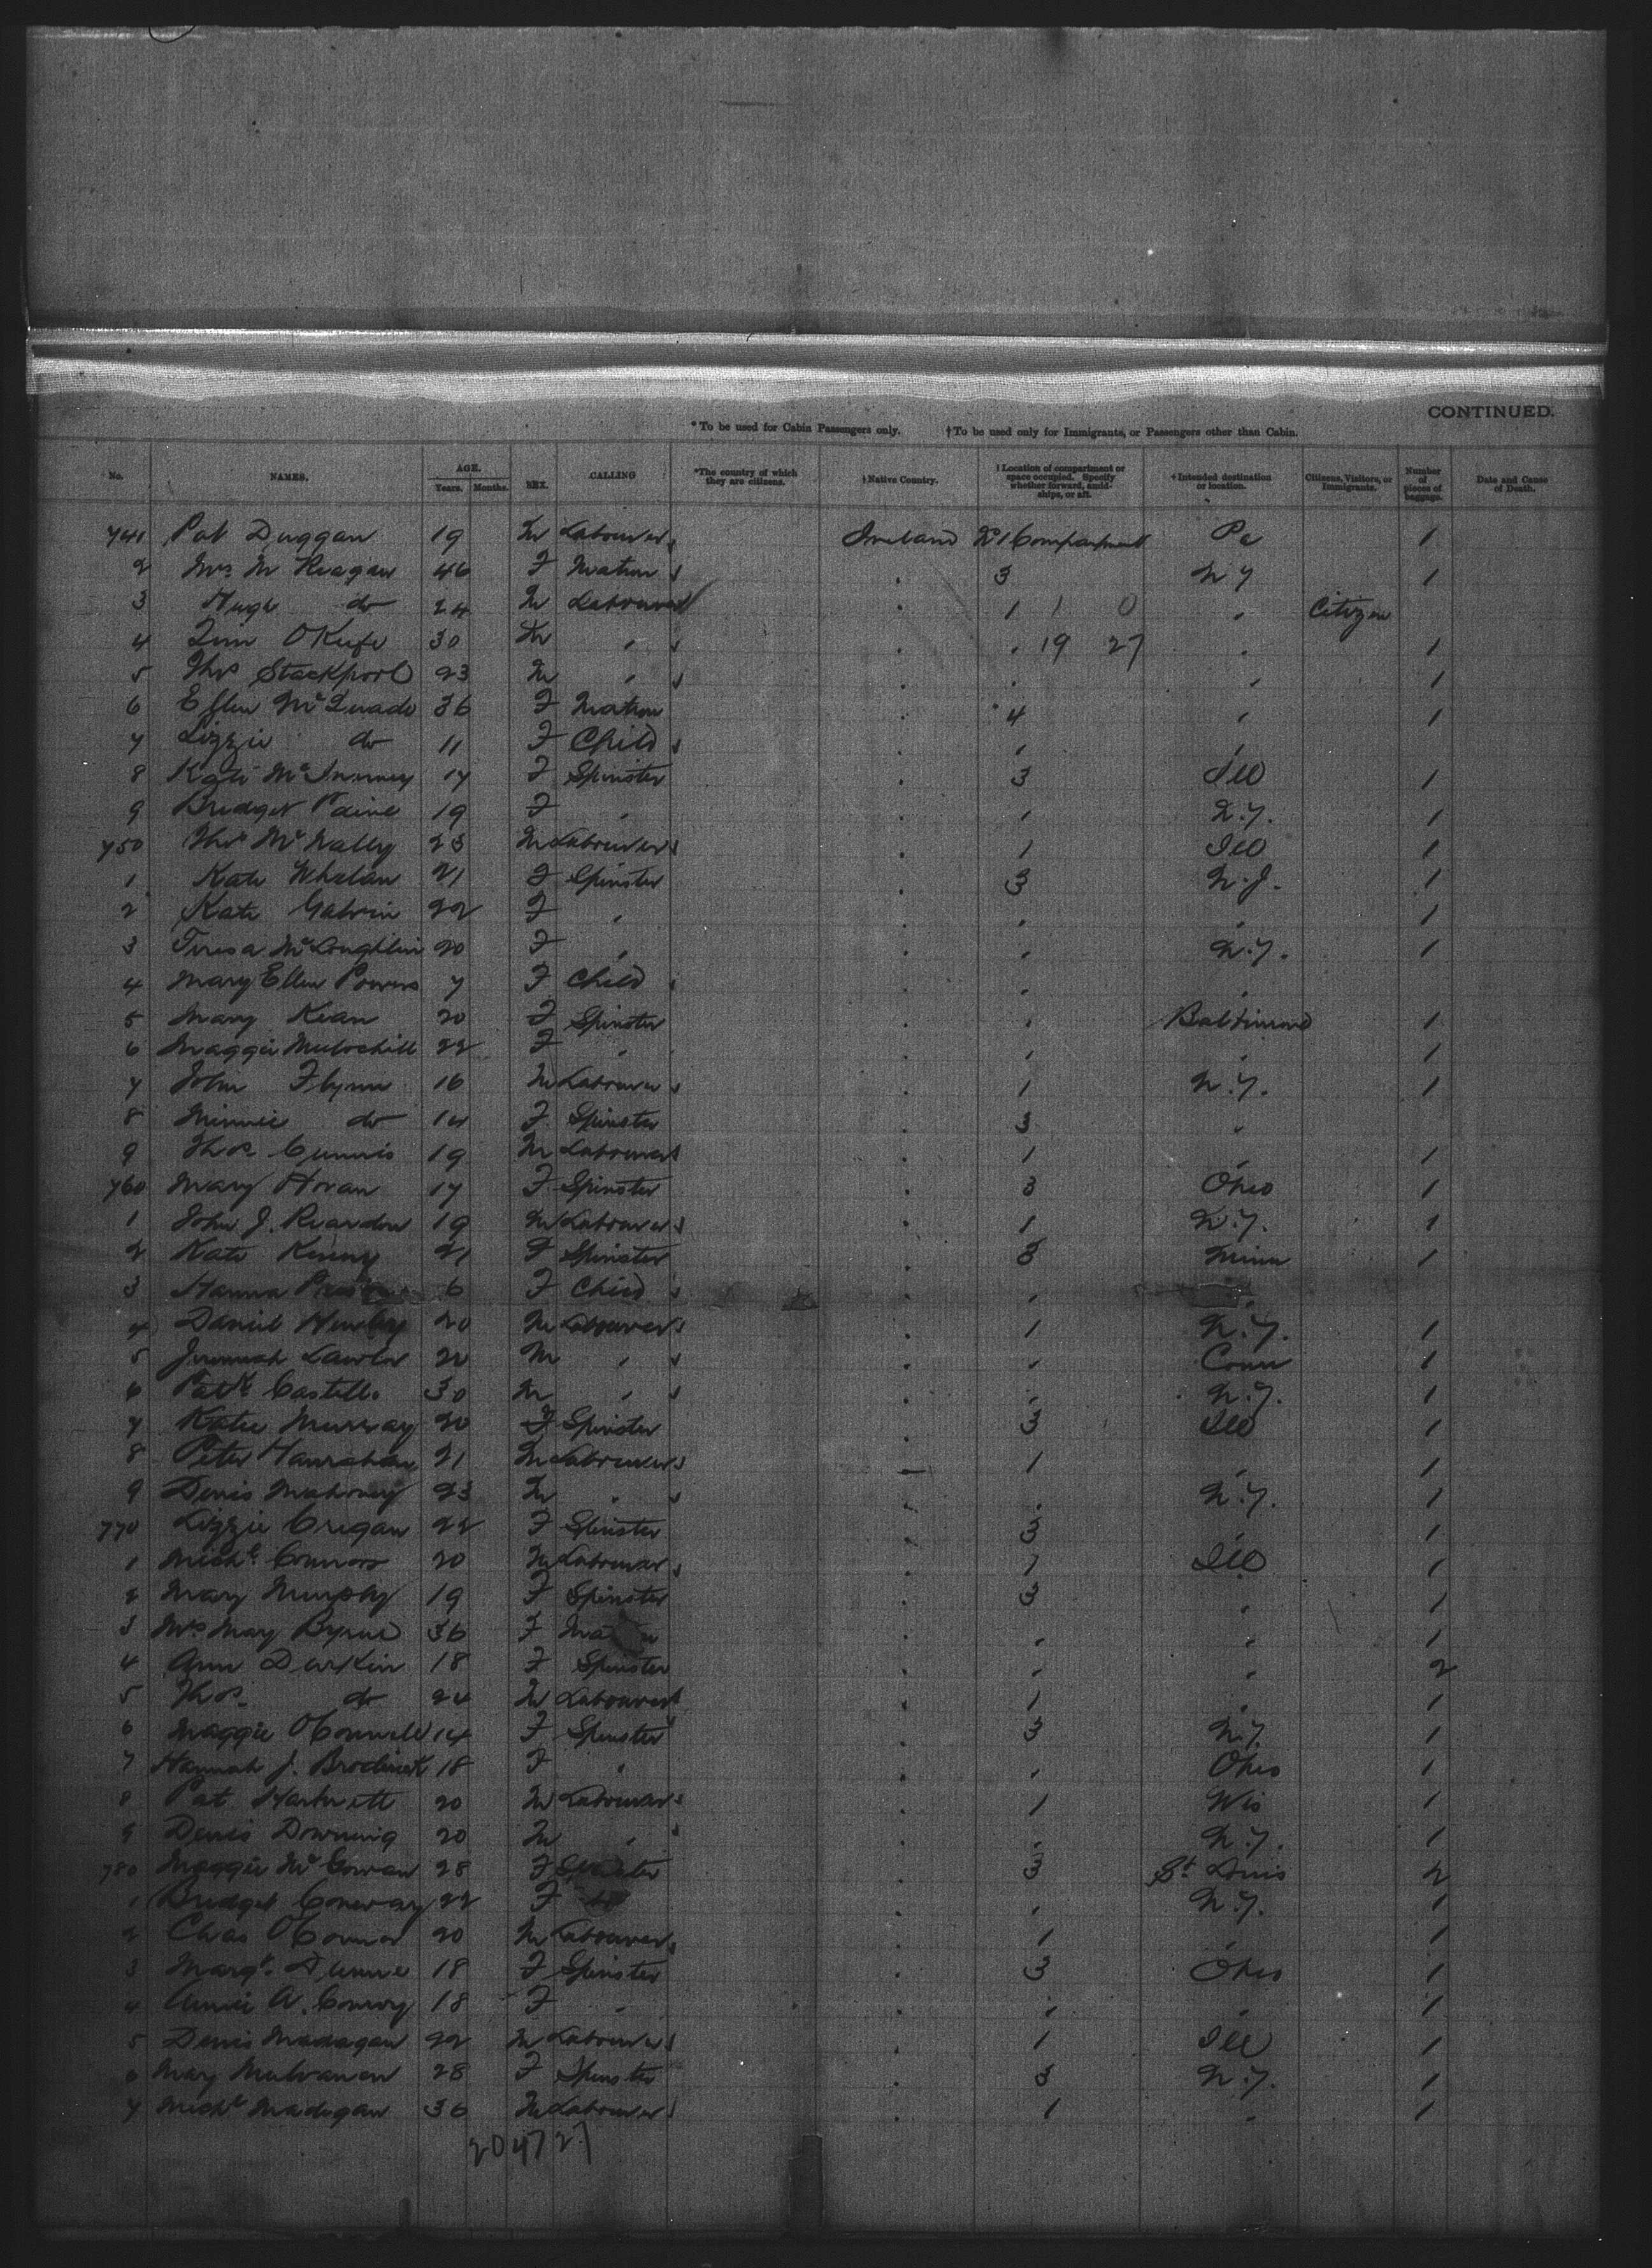 CONTINUED.
* To be used for Cabin Passengers only. † To be used only for Immigrants, or Passengers other than Cabin.
No. NAMES. AGE. Years. Months. SEX. CALLING *The country of which they are citizens. †Native Country. †Location of compartment or space occupied. Specify whether forward, amidships, or aft. †Intended destination or location. Citizens, Visitors, or Immigrants. Number of pieces of baggage. Date and Cause of Death.
741 Pat Duggan 19 M Labourer Ireland No 1 Compartment Pa 1
2 Mrs M Reagan 46 F Matron " 3 N Y 1
3 Hugh do 24 M Labourer " 1 1 0 " Citizen
4 Tim OKeefe 30 M " " " 19 27 " 1
5 Thos Stackpool 23 M " " " " 1
6 Ellen McQuade 36 F Matron " 4 " 1
7 Lizzie do 11 F Child " " "
8 Kate McInerney 17 F Spinster " 3 Ill 1
9 Bridget 19 F " " " N.Y. 1
750 Thos McNally 23 M Labourer " 1 Ill 1
1 Kate Whelan 21 F Spinster " 3 N.J. 1
2 Kate Galvin 22 F " " " " 1
3 Teresa McLoughlin 20 F " " " N.Y. 1
4 Mary Ellen Powers 7 F Child " " "
5 Mary Kean 20 F Spinster " " Baltimore 1
6 Maggie 22 F " " " " 1
7 John Flynn 16 M Labourer " 1 N.Y. 1
8 Minnie do 14 F Spinster " 3 "
9 Thos 19 M Labourer " 1 " 1
760 Mary Horan 17 F Spinster " 3 Ohio 1
1 John J. Reardon 19 M Labourer " 1 N.Y. 1
2 Kate 21 F Spinster " 3 Minn 1
3 Hanna 6 F Child " " "
4 Daniel 20 M Labourer " 1 N.Y. 1
5 Jeremiah Lawlor 20 M " " " Conn 1
6 Patk Costello 30 M " " " N.Y. 1
7 Katie Murray 20 F Spinster " 3 Ill 1
8 Peter Hanrahan 21 M Labourer " 1 " 1
9 Denis Mahoney 23 M " " " N.Y. 1
770 Lizzie Cregan 22 F Spinster " 3 " 1
1 Michl Connors 20 M Labourer " 1 Ill 1
2 Mary Murphy 19 F Spinster " 3 " 1
3 Mrs May Byrne 36 F " " " 1
4 Ann Durkin 18 F Spinster " " " 2
5 Thos. do 24 M Labourer " 1 " 1
6 Maggie OConnell 14 F Spinster " 3 N.Y. 1
7 Hannah J. Broderick 18 F " " " Ohio 1
8 Pat Hartnett 20 M Labourer " 1 Wis 1
9 Denis Downing 20 M " " " N.Y. 1
780 Maggie McGowan 28 F Spinster " 3 St Louis 2
1 Bridget Conway 22 F " " N.Y. 1
2 Chas OConnor 20 M Labourer " 1 " 1
3 Margt. Dunne 18 F Spinster " 3 Ohio 1
4 Annie A. Conroy 18 F " " " " 1
5 Denis Madagan 22 M Labourer " 1 Ill 1
6 Mary 28 F Spinster " 3 N.Y. 1
7 Michl Madigan 36 M Labourer " 1 " 1
204727